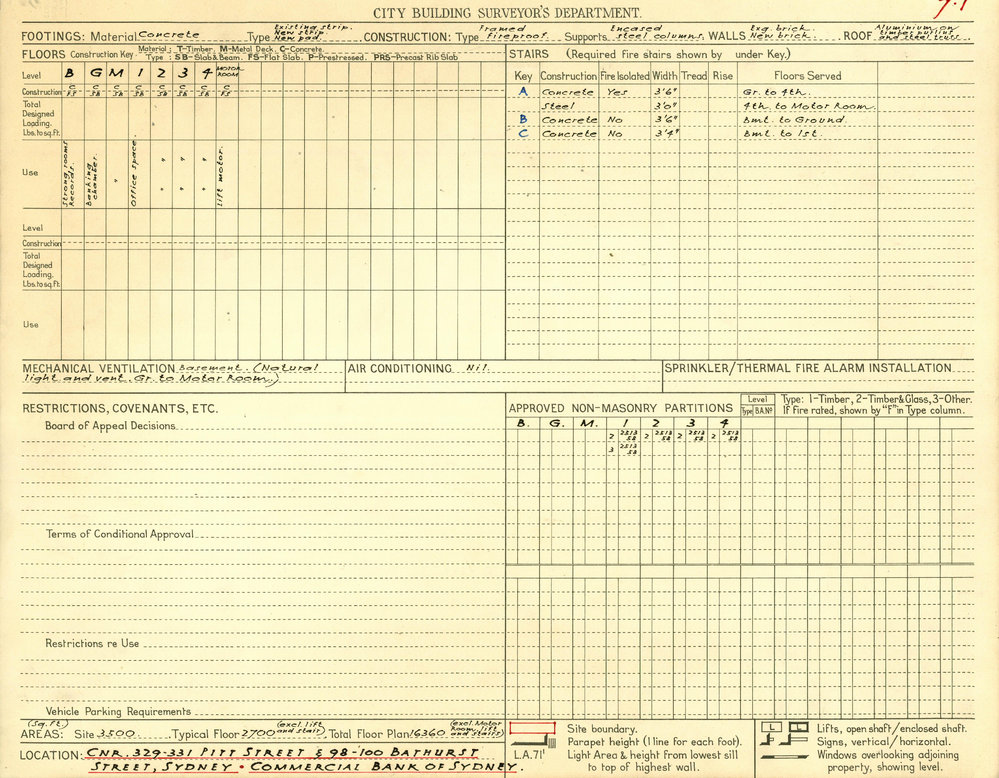 CITY BUILDING SURVEYOR'S DEPARTMENT.
FOOTINGS: Material Concrete Type Existing strip. New strip New pad. CONSTRUCTION: Type Framed fireproof. Supports Encased steel columns. WALLS Exg. brick. New brick. ROOF Aluminium on timber purlins and steel truss
FLOORS Construction Key Material: T-Timber. M-Metal Deck. C-Concrete.
Type: SB-Slab & Beam. FS-Flat Slab. P-Prestressed. PRS-Precast Rib Slab
Level B G M 1 2 3 4 MOTOR ROOM
Construction C FS C SB C SB C SB C SB C SB C SB C FS
Total Designed Loading. Lbs. to sq.ft.
Use Strong rooms Records. Banking chamber. " Office space " " " " " " Lift motor.
Level
Construction
Total Designed Loading. Lbs. to sq.ft.
Use
STAIRS (Required fire stairs shown by under Key.)
Key Construction Fire Isolated Width Tread Rise Floors Served
A Concrete Yes 3'6" Gr. to 4th.
Steel 3'0" 4th. to Motor Room.
B Concrete No 3'6" Bmt. to Ground.
C Concrete No 3'4" Bmt. to 1st.
MECHANICAL VENTILATION Basement. (Natural
light and vent. Gr. to Motor Room.)
AIR CONDITIONING Nil.
SPRINKLER/THERMAL FIRE ALARM INSTALLATION
RESTRICTIONS, COVENANTS, ETC.
Board of Appeal Decisions
Terms of Conditional Approval
Restrictions re Use
Vehicle Parking Requirements
APPROVED NON-MASONRY PARTITIONS Level Type B.A.Nº Type: 1-Timber, 2-Timber & Glass, 3-Other.
If fire rated, shown by "F" in Type column.
B. G. M. 1 2 3 4
2 2513 58 2 2513 58 2 2513 58 2 2513 58
3 2513 58
(Sq. Ft.) (excl. lift and stair) (excl. Motor Room and stairs)
AREAS: Site 3500 Typical Floor 2700 Total Floor Plan 16360
LOCATION: CNR. 329-331 PITT STREET & 98-100 BATHURST
STREET, SYDNEY - COMMERCIAL BANK OF SYDNEY.
Site boundary.
Parapet height (1 line for each foot).
L.A.71' Light Area & height from lowest sill
to top of highest wall.
L L Lifts, open shaft/enclosed shaft.
Signs, vertical/horizontal.
Windows overlooking adjoining
property, showing level.